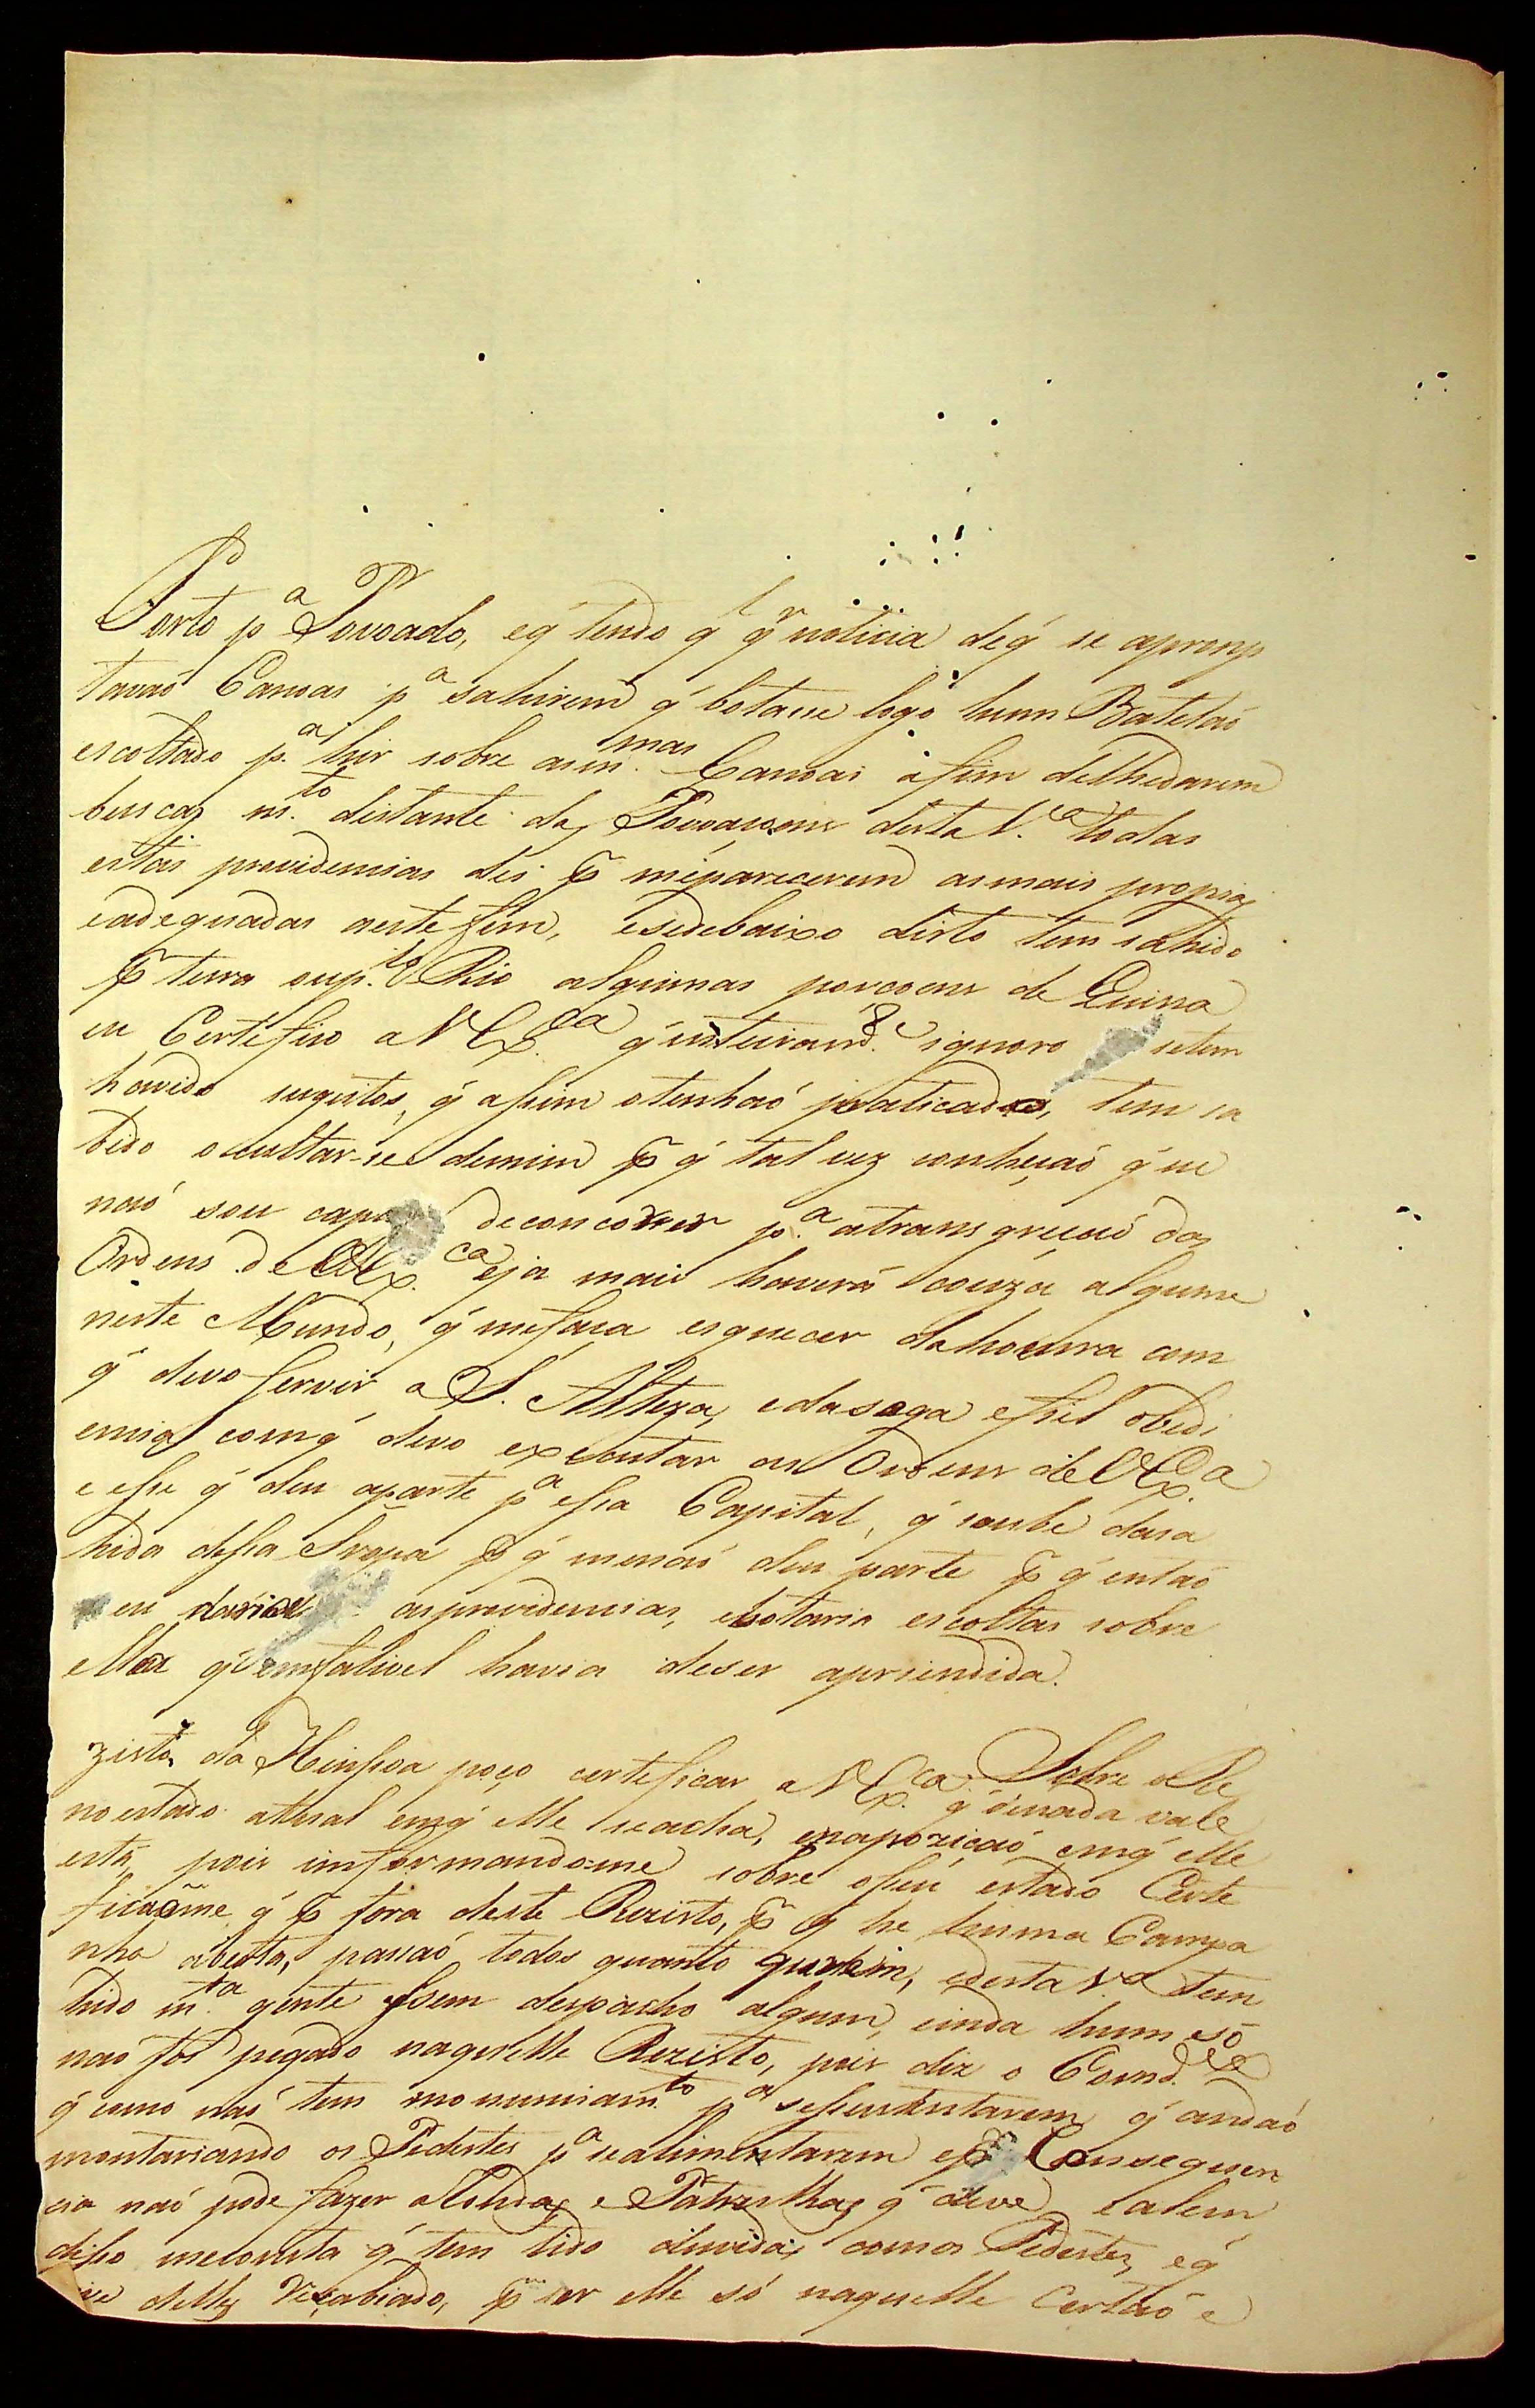 Porto pª Povoado, e q' tendo q' q.l q.r noticia de q' se apromp
tavaõ Canoas pª sahirem q' botasse logo hum Batelaõ
escoltado p.ª hir sobre as m.mas Canoas a fim de lhe darem
buscaz m.to distante daz Povoaçoens desta V.ª todas
estas providencias dei p me parecerem as mais propriaz
e adequadas a este fim, e se debaixo disto tem sahido
p terra ou p.lo Rio algumas porcoens de Quina
eu Certifico a V Ex.ca q' inteiram.e ignoro se tem
havido sugeitos, q' assim o tenhaõ praticado, tem sa
bido ocultar-se de mim p q' tal vez conheçaõ q' eu
naõ sou capaz de concorrer p.ª a transgreçaõ daz
Ordens de V Ex.ca e ja mais haverá couza alguma
neste Mundo, q' me faça esquecer da honrra com
q' devo servir a S. Alteza, e da sega e fiel obedi
encia com q' devo executar as Ordens de V Ex.ª
e esse q' deu a parte pª essa Capital, q' soube da sa
hida dessa Tropa p q' me naõ deu parte p q' entaõ
eu daria as providencias, e botaria escoltas sobre
ella q' emfalivel havia de ser apriendida.
Sobre o Re
zisto da Insua poço certificar a V Ex.ca q' de nada vale
no estado atual em q' elle se acha, e na pozicaõ em q' elle
está, pois informando-me sobre o seu estado Certe
ficaõme q' p fora deste Rezisto, p q' he huma Campa
nha aberta, passaõ todos quanto querem, e desta V.ª tem
hido m.ta gente sem despacho algum, e inda hum só
naõ foi pegado naquelle Rezisto, pois diz o Comd.e
q' como naõ tem moniciam.to pª se sustentarem q' andaõ
montariando os Pedestes pª se alimentarem e p Consequen
cia naõ pode fazer as Rondaz e Patrulhaz q' deve, e alem
disso me consta q' tem tido duvidaz com os Pedestez, e q'
delles Vexabiado, p ser elle só naquelle Certaõ e